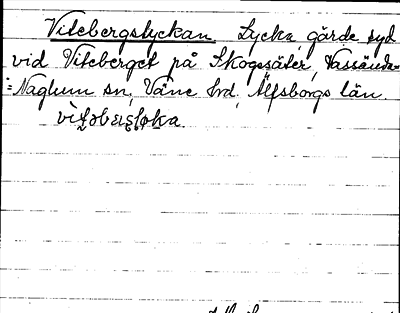 Vitebergslyckan Lycka, gärde syd
vid Viteberget på Skogssäter, Vassända-
=Naglum sn, Väne hd, Älfsborgs län.